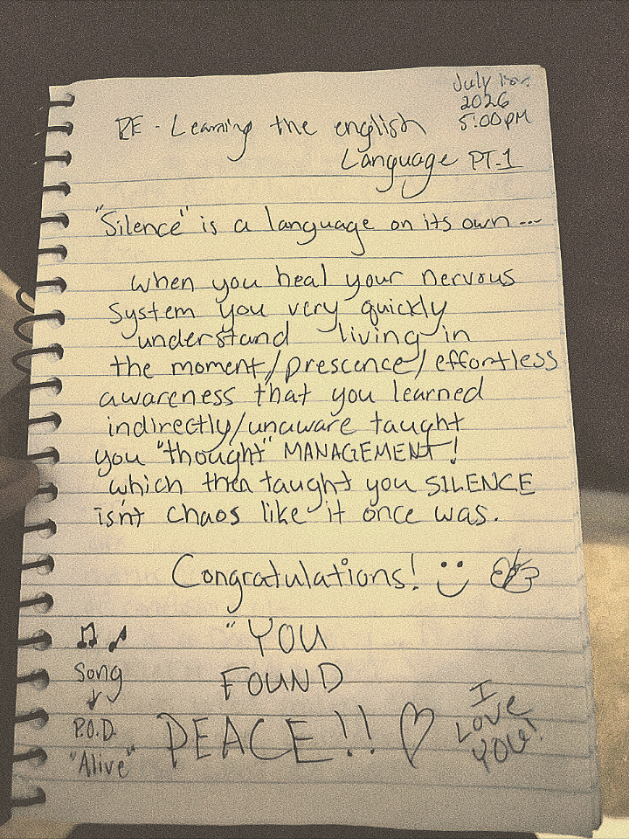 July
2026
5:00PM
RE - Learning the english
Language PT.1
"Silence" is a language on its own...
when you heal your nervous
system you very quickly
understand living in
the moment/prescence/effortless
awareness that you learned
indirectly/unaware taught
you "thought" MANAGEMENT!
which then taught you SILENCE
isn't chaos like it once was.
Congratulations!
"YOU
FOUND
PEACE!!
I
LOVE
YOU!
Song
P.O.D.
"Alive"